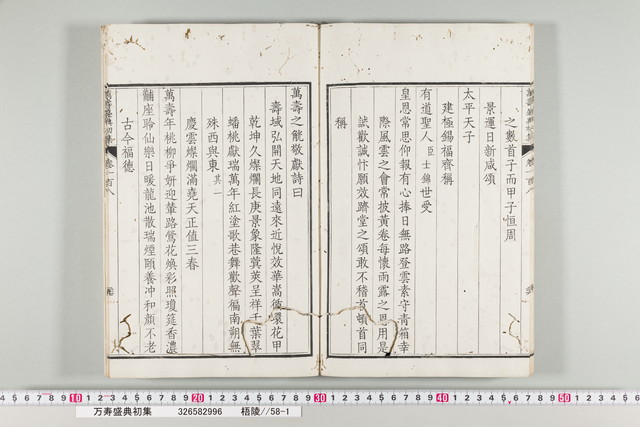 之數首子而甲子恒周
景運日新咸頌
太平天子
建極錫福齊稱
有道聖人臣士錦世受
皇恩常思仰報有心捧日無路登雲素守青箱幸
際風雲之會常披黃卷每懷雨露之恩用是
試歡誠忭願效躋堂之頌敢不稽首頓首同
稱
萬壽之觥敬獻詩曰
壽域弘開天地同遠來近悅效華嵩循環花甲
乾坤久燦爛長庚景象隆蓂莢呈祥千葉翠
蟠桃獻瑞萬年紅塗歌巷舞歡聲徧南朔無
殊西與東其一
慶雲燦爛滿堯天正值三春
萬壽年桃柳爭妍迎輦路鶯花煥彩照瓊筵香濃
黼座聆仙樂日暖龍池散瑞煙頤養冲和顏不老
古今福德
萬壽盛典初集 卷一百八
10 20 30 40 50
万寿盛典初集 326582996 梧陵//58-1